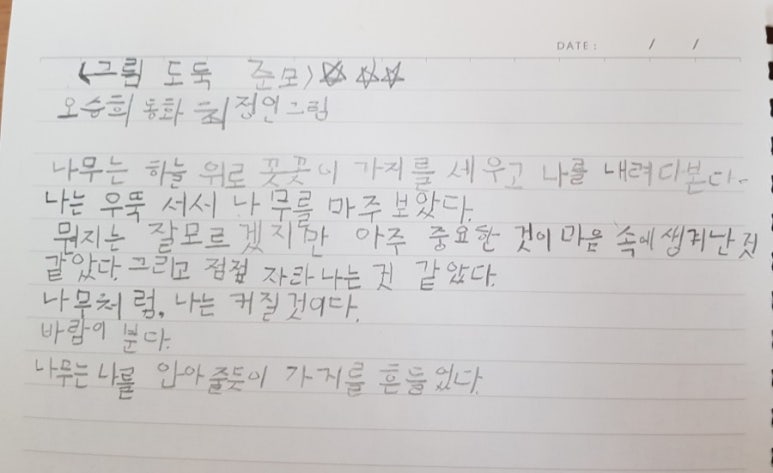 DATE : / /
<그림 도둑 준모> ☆☆☆
오승희 동화 최정인그림
나무는 하늘 위로 꼿꼿이 가지를 세우고 나를 내려다본다.
나는 우뚝 서서 나무를 마주 보았다.
뭔지는 잘모르겠지만 아주 중요한 것이 마음 속에 생겨난 것
같았다. 그리고 점점 자라 나는 것 같았다.
나무처럼, 나는 커질것이다.
바람이 분다.
나무는 나를 안아 줄듯이 가지를 흔들었다.